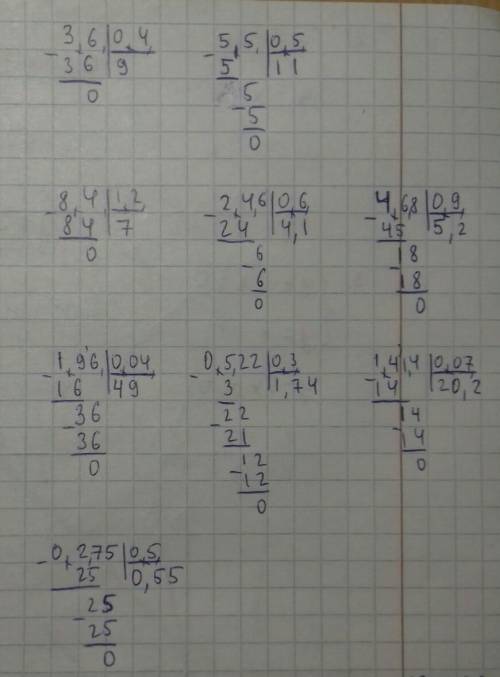 3,6, | 0,4,
- 36 | 9
0
5,5, | 0,5,
- 5 | 11
5
- 5
0
8,4, | 1,2,
- 84 | 7
0
2,4,6 | 0,6,
- 24 | 4,1
6
- 6
0
4,6,8 | 0,9,
- 45 | 5,2
18
- 18
0
1,96, | 0,04,
- 16 | 49
36
- 36
0
0,5,22 | 0,3,
- 3 | 1,74
22
- 21
12
- 12
0
1,41,4 | 0,07
- 14 | 20,2
14
- 14
0
0,2,75 | 0,5,
- 25 | 0,55
25
- 25
0